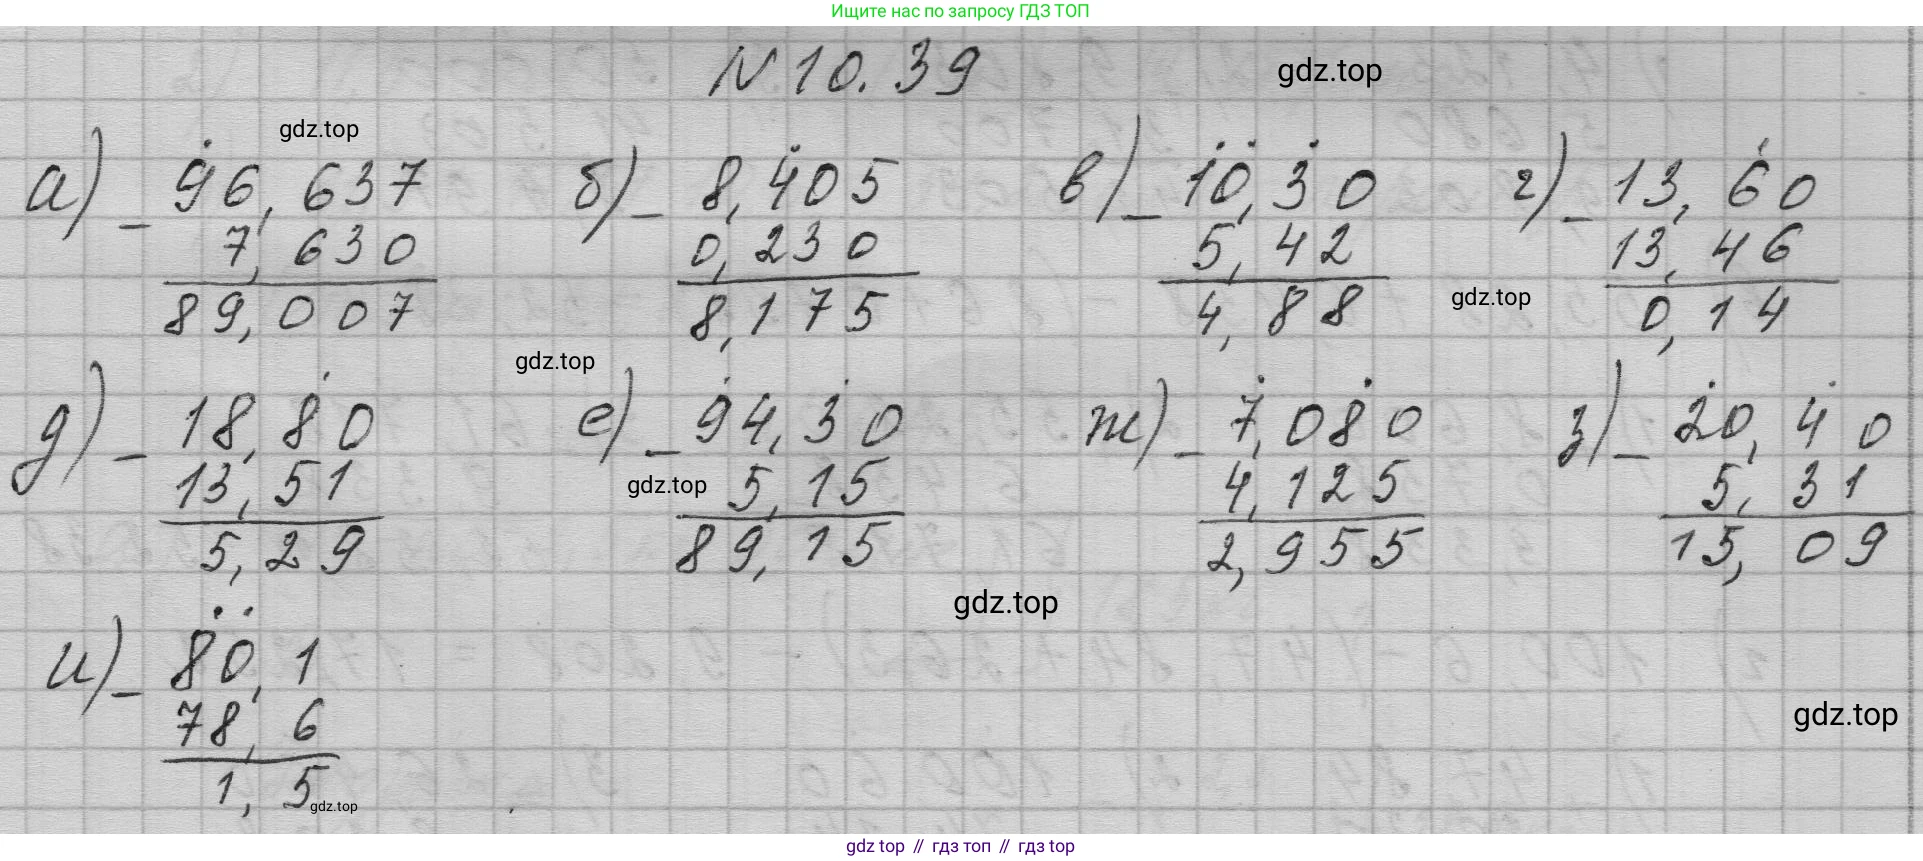 Ищите нас по запросу ГДЗ ТОП
N 10.39 gdz.top
gdz.top
а) - 96,637 б) - 8,405 в) - 10,30 г) - 13,60
7,630 0,230 5,42 13,46
89,007 8,175 4,88 0,14
gdz.top
gdz.top
д) - 18,80 е) - 94,30 ж) - 7,080 з) - 20,40
13,51 5,15 4,125 5,31
gdz.top
5,29 89,15 2,955 15,09
gdz.top
и) - 80,1
78,6
gdz.top
1,5
gdz.top
gdz top // гдз топ // гдз top